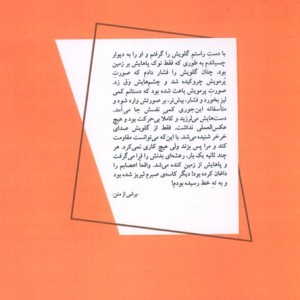 با دست راستم گلویش را گرفتم و او را به دیوار
چسباندم به طوری که فقط نوک پاهایش بر زمین
بود. چنان گلویش را فشار دادم که صورت
پرمویش چروکیده شد و چشم‌هایش وَق زد.
صورتِ پرمویش باعث شده بود که دستانم کمی
لیز بخورد و فشار، بیش‌تر، بر صورتش وارد شود و
متأسفانه این‌جوری کمی نفسش جا می‌آمد.
دست‌هایش می‌لرزید و کاملا بی‌حرکت بود و هیچ
عکس‌العملی نداشت. فقط از گلویش صدای
خرخر شنیده می‌شد. با این‌که می‌توانست مقاومت
کند و مرا پس بزند ولی هیچ کاری نمی‌کرد. هر
چند ثانیه یک بار، رعشه‌ای بدنش را فرا می‌گرفت
و پاهایش از زمین کنده می‌شد. واقعا اعصابم را
داغان کرده بود! دیگر کاسه‌ی صبرم لبریز شده بود
و به تهِ خط رسیده بودم!
-برشی از متن-